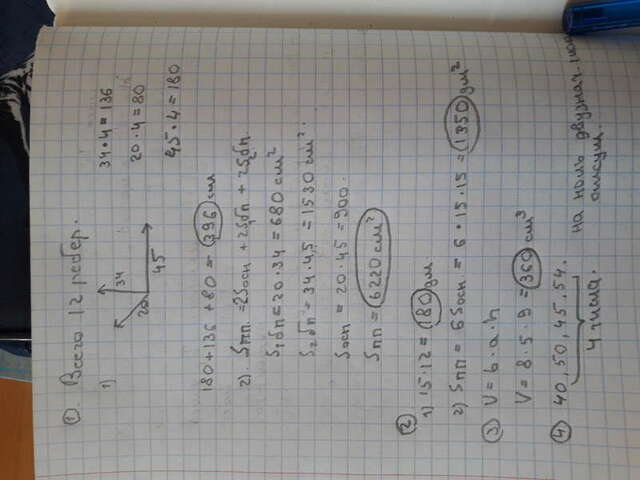 ① Всего 12 ребер.
1) 34 20 45
34·4=136
20·4=80
45·4=180
180+136+80=396 см
2) Sпп=2Sосн+2S₁бп+2S₂бп
S₁бп=20·34=680 см²
S₂бп=34·45=1530 см².
Sосн=20·45=900.
Sпп=6220 см²
②
1) 15·12=180 дм
2) Sпп=6Sосн=6·15·15=1350 дм²
③ V=b·a·h
V=8·5·9=360 см³
④ 40, 50, 45, 54.
4 числа.
на ноль двузнач. числа
отсут.